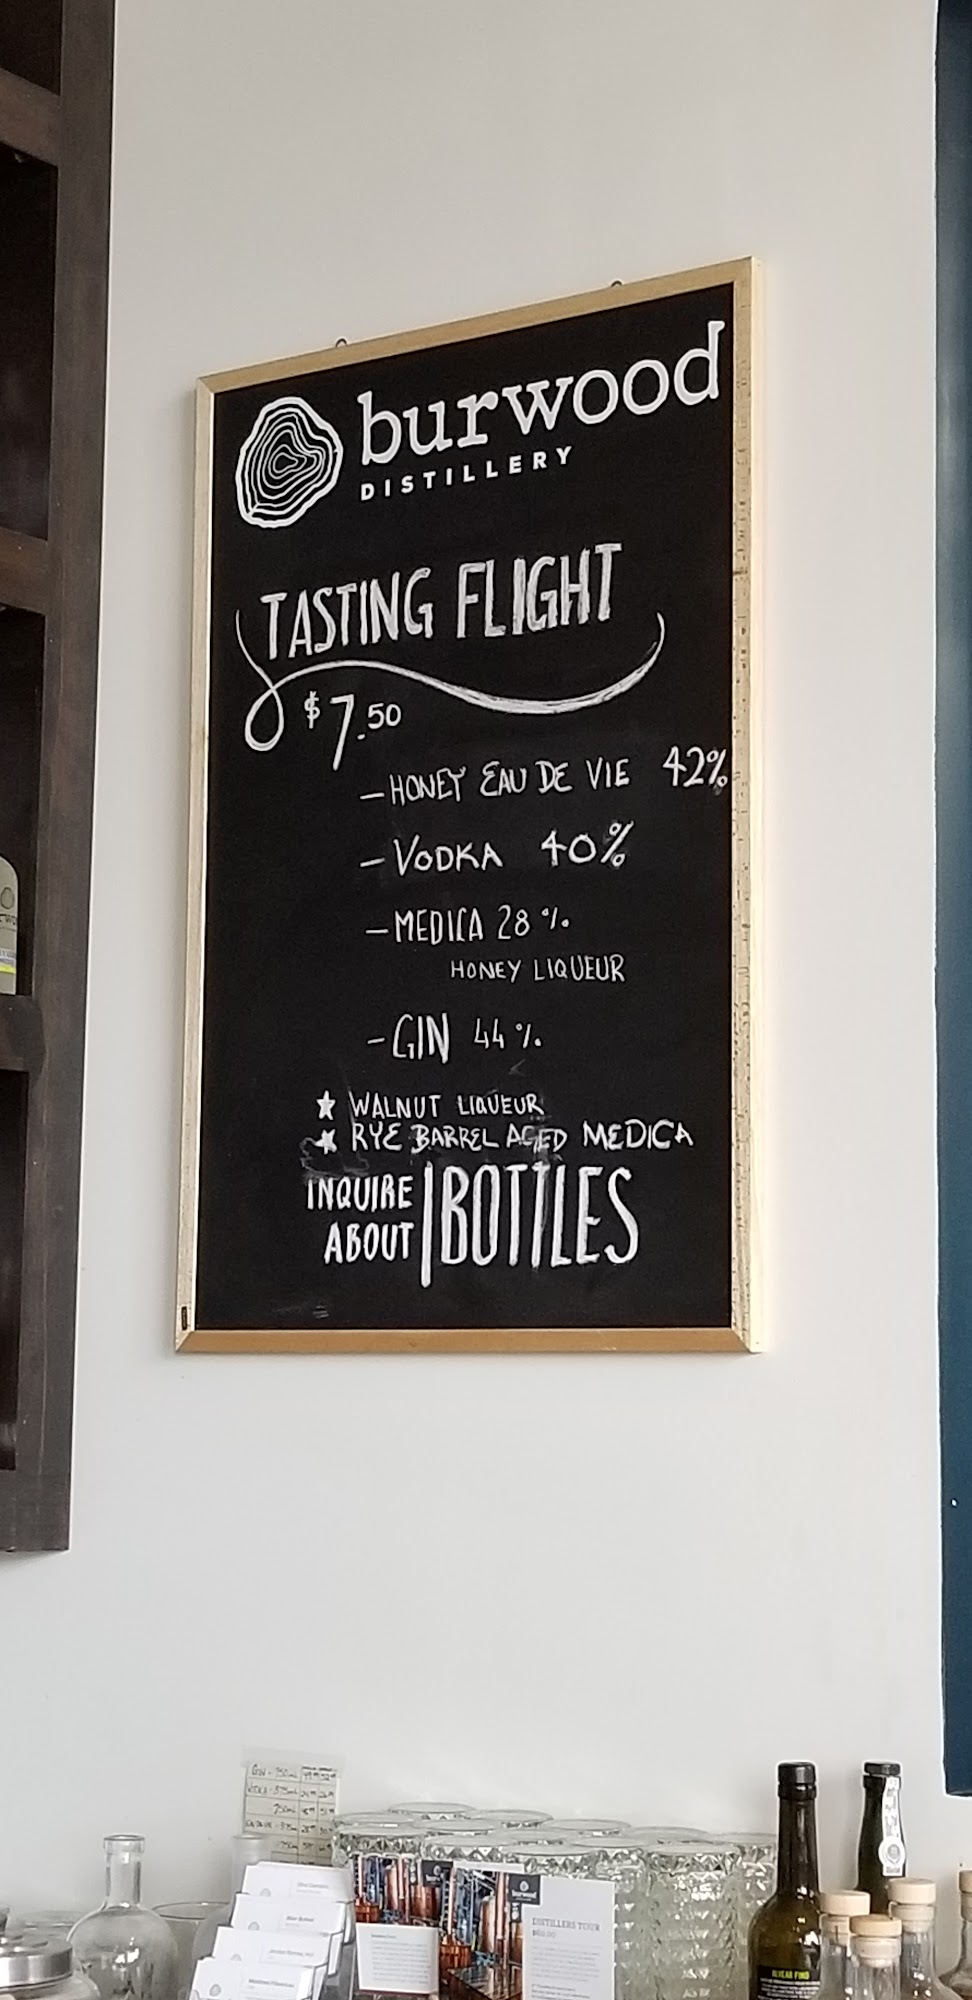 burwood
DISTILLERY
TASTING FLIGHT
$7.50
- HONEY EAU DE VIE 42%
- VODKA 40%
- MEDICA 28%
HONEY LIQUEUR
- GIN 44%
★ WALNUT LIQUEUR
★ RYE BARREL AGED MEDICA
INQUIRE
ABOUT | BOTTLES
burwood
DISTILLERS TOUR